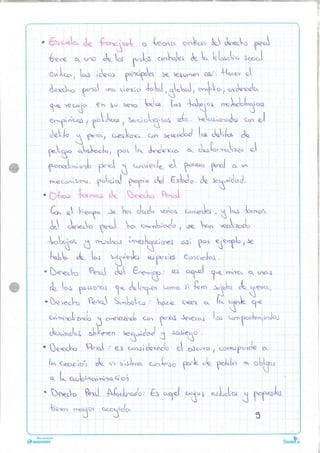 • Escuela de Francfort o teoría crítica del derecho penal
tiene a uno de los puntos centrales de la filosofía social
crítica, las ideas principales se resumen así: Hacer el
derecho penal una ciencia total, global, amplia, ordenada
que recoja en su seno todos los trabajos metodológicos
empíricos, políticos, sociológicos etc. relacionados con el
delito y pena, cuestiona con severidad los delitos de
peligro abstracto, pues la tendencia a desformalizar el
procedimiento penal y convierte el proceso penal a un
mecanismo policial propio del Estado de seguridad.
• Otras formas de Derecho Penal
Con el tiempo se han dado varios cambios, y las formas
del derecho penal ha cambiado, se han realizado
trabajos y muchas investigaciones así pues ejemplo, se
habla de las siguientes especies conocidas.
• Derecho Penal del Enemigo: es aquel que mira a unos
de los personas que delinquen como si fueran sujetos de guerra.
• Derecho Penal Simbolico: hace creer a la gente que
criminalizando y amenazando con penas severas los comportamientos
desviados obtienen seguridad y sosiego.
• Derecho Penal: es considerado el oscuro, corresponde a
la creación de un sistema confuso parte de pedir a obligar
a la autoincriminación
• Derecho Penal Afortunado: Es aquel cuyos estudios y propuestas
tienen mayor acogida
9